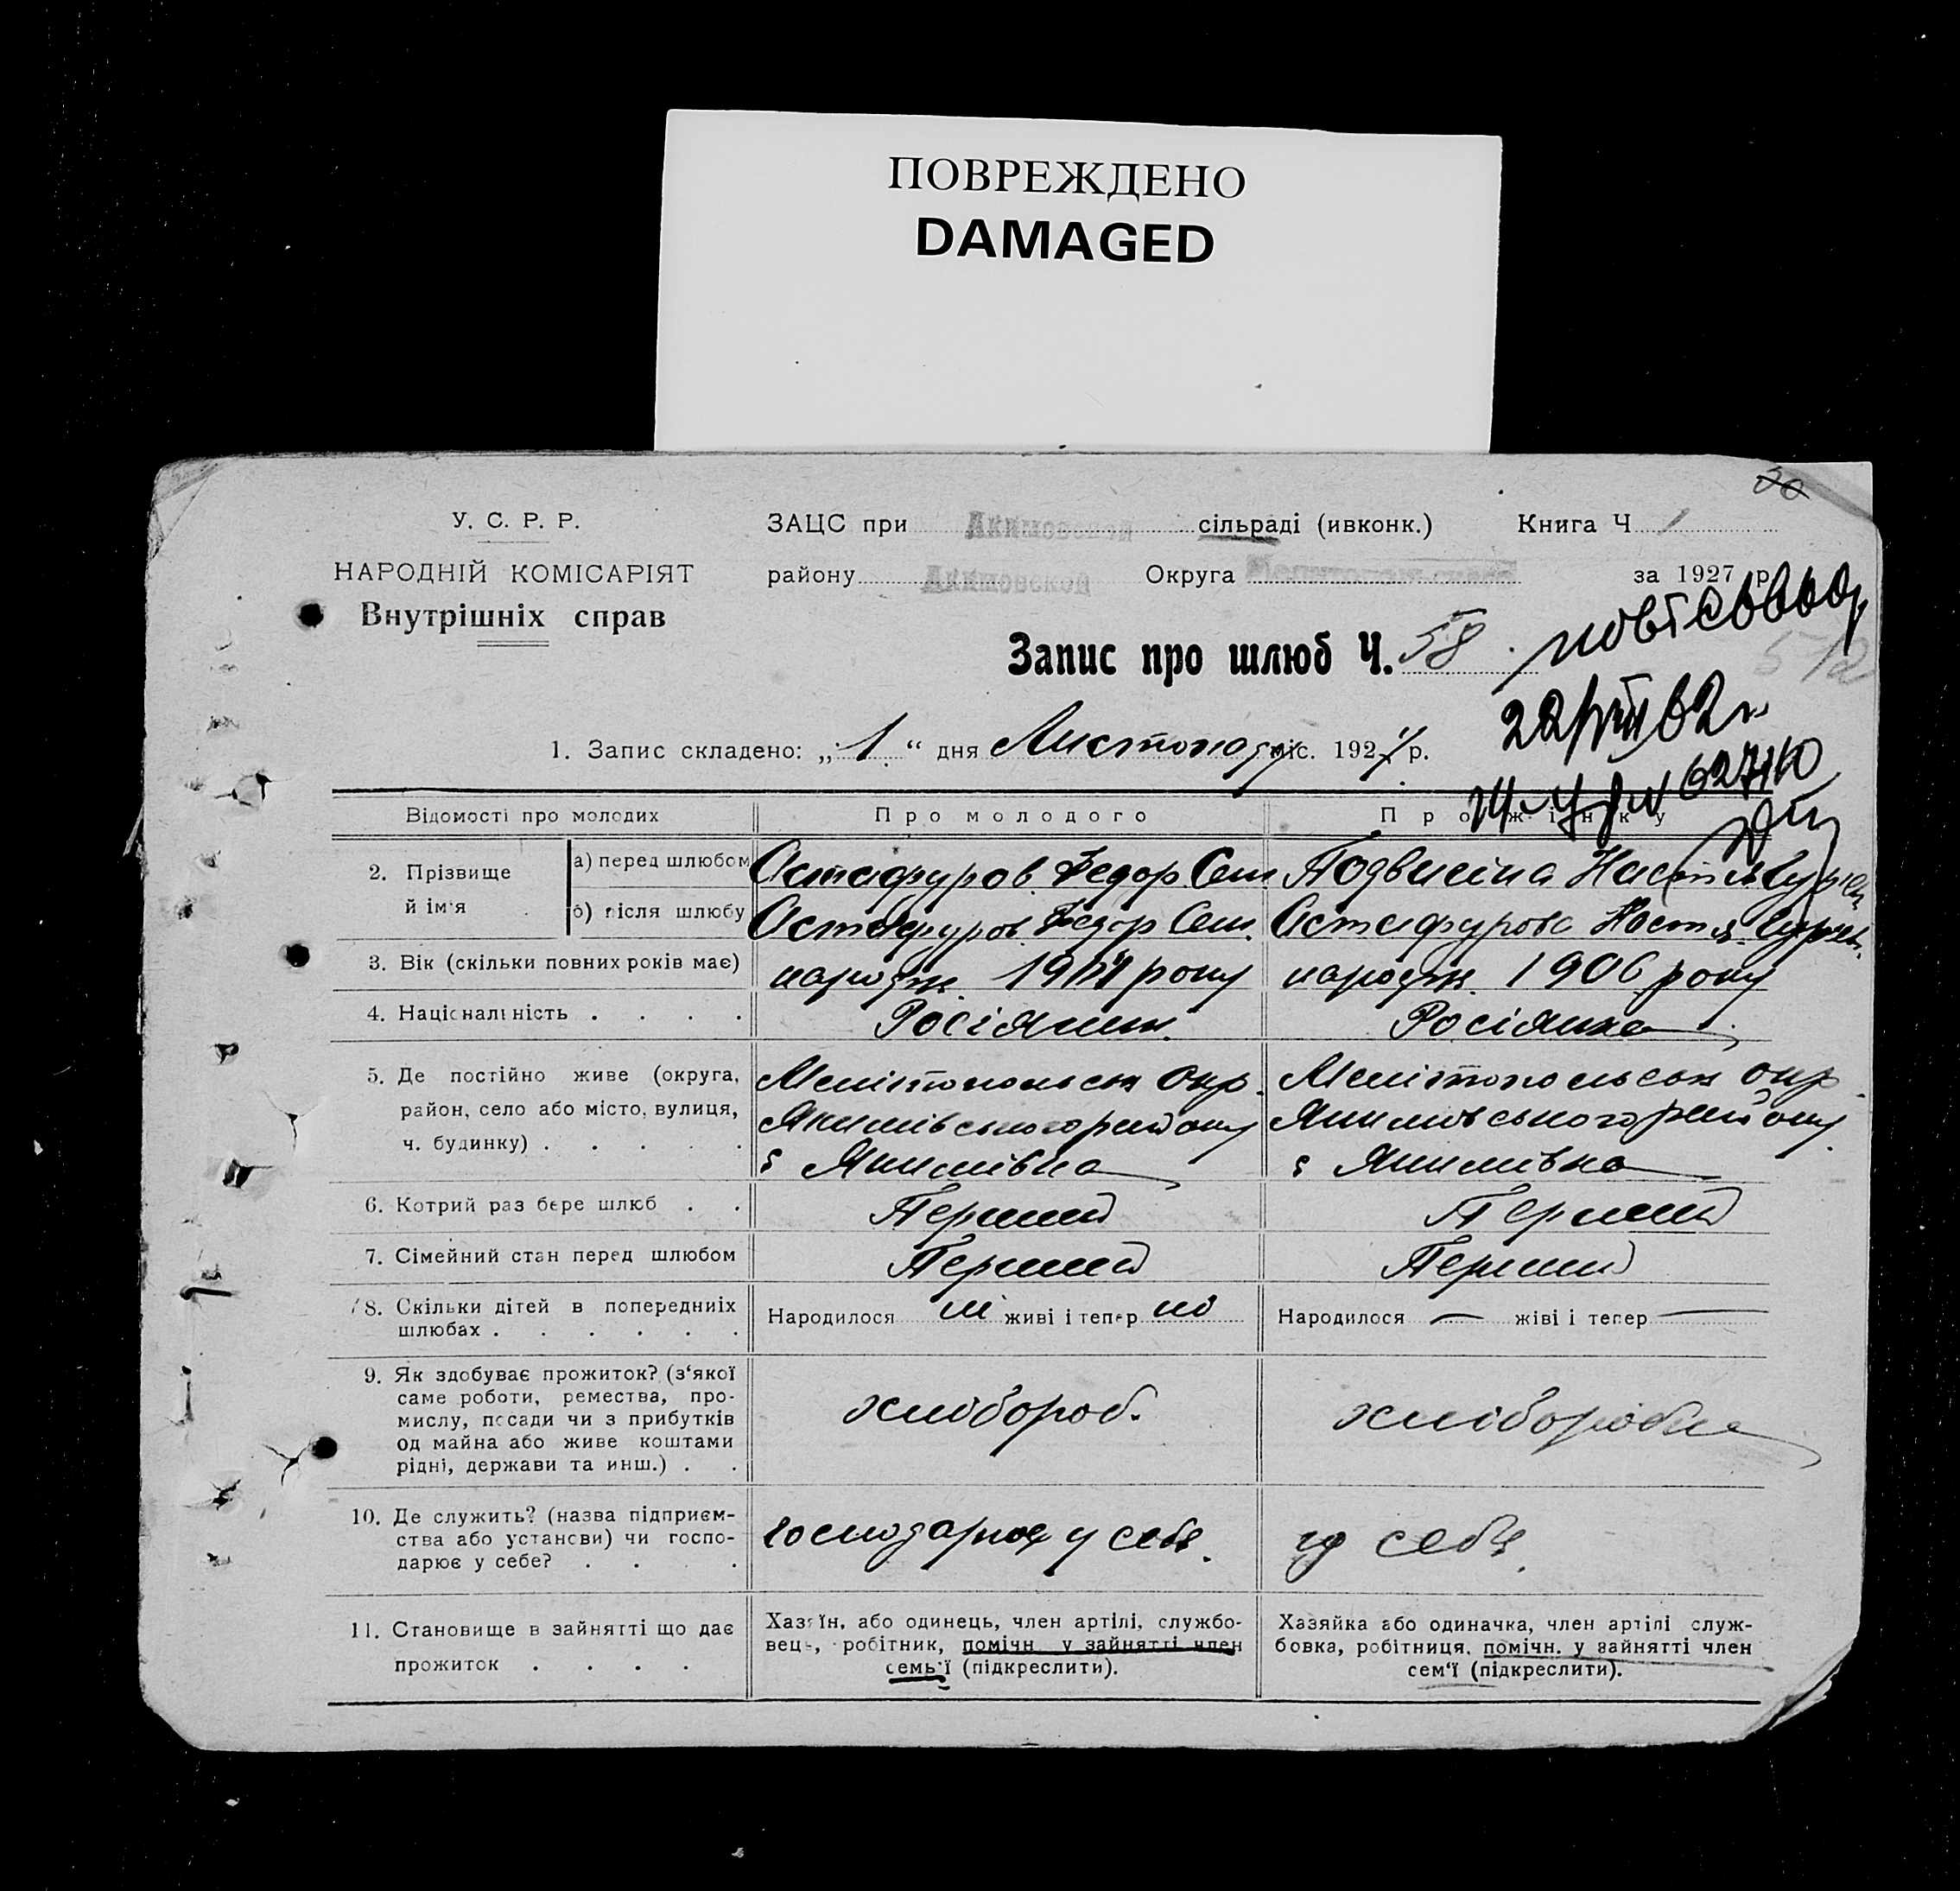 ПОВРЕЖДЕНО
DAMAGED
У. С. Р. Р.
НАРОДНІЙ КОМІСАРІЯТ
Внутрішніх справ
ЗАЦС при Акимовской сільраді (ивконк.) Книга Ч 1
району Акимовской Округа за 1927 р.
Запис про шлюб Ч. 58
1. Запис складено: „1“ дня Листопода міс. 192 р.
Відомості про молодих Про молодого Про жінку
2. Прізвище й ім'я
а) перед шлюбом Остафуров Федор Сем Подвисіна Настя
б) після шлюбу Остафуров Федор Сем. Остафурова Настя
3. Вік (скільки повних років має) народж. року народж. 1906 року
4. Національність . . . . Росіянин. Росіянка
5. Де постійно живе (округа, район, село або місто, вулиця, ч. будинку) . . . . .
Мелітопольськ Окр. Мелітопольськ окр.
Якимівського району Якимівського району.
с Якимівка с Якимівка
6. Котрий раз бере шлюб . . Перший Перший
7. Сімейний стан перед шлюбом Перший Перший
8. Скільки дітей в попередниіх шлюбах . . . . . .
Народилося ні живі і тепер ні Народилося — жіві і тепер —
9. Як здобуває прожиток? (з'якої
саме роботи, ремества, про-
мислу, посади чи з прибутків
од майна або живе коштами
рідні, держави та инш.) . .
хлібороб. хліборобка
10. Де служить? (назва підприєм-
ства або установи) чи госпо-
дарює у себе? . . . .
господарює у себе. у себе.
11. Становище в зайнятті що дає
прожиток . . . .
Хазяїн, або одинець, член артілі, службо-
вець, робітник, помічн. у зайнятті член
семь'ї (підкреслити).
Хазяйка або одиначка, член артілі служ-
бовка, робітниця, помічн. у зайнятті член
сем'ї (підкреслити).